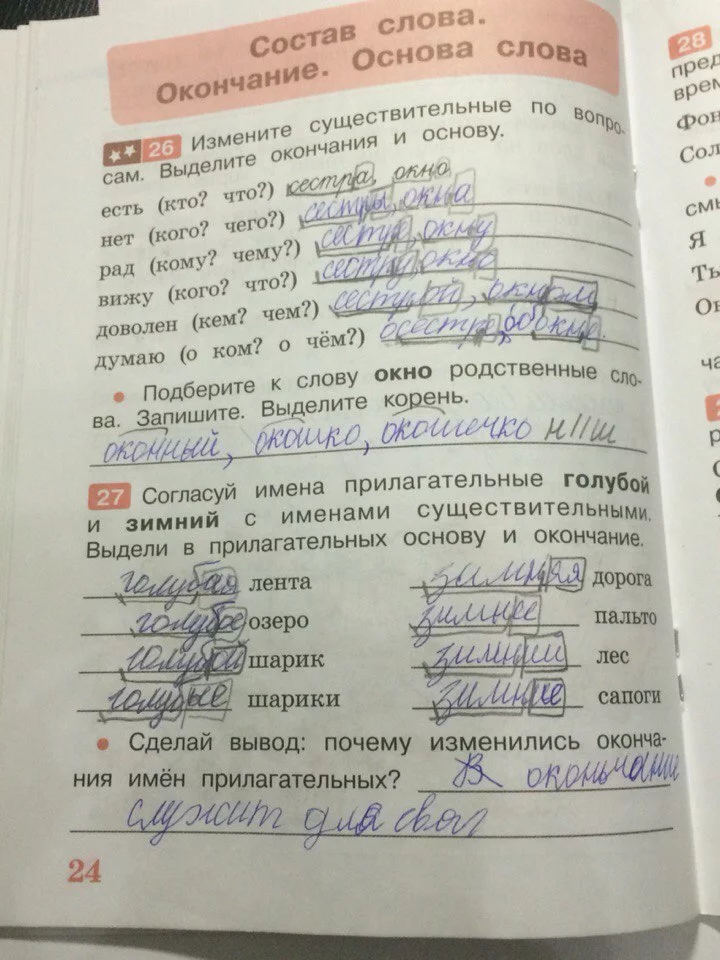 Состав слова.
Окончание. Основа слова
26 Измените существительные по вопро-
сам. Выделите окончания и основу.
есть (кто? что?) сестра, окно
нет (кого? чего?) сестры, окна
рад (кому? чему?) сестре, окну
вижу (кого? что?) сестру, окно
доволен (кем? чем?) сестрой, окном
думаю (о ком? о чём?) осестре, об окне.
• Подберите к слову окно родственные сло-
ва. Запишите. Выделите корень.
оконный, окошко, окошечко н//ш
27 Согласуй имена прилагательные голубой
и зимний с именами существительными.
Выдели в прилагательных основу и окончание.
голубая лента зимняя дорога
голубое озеро зимнее пальто
голубой шарик зимний лес
голубые шарики зимние сапоги
• Сделай вывод: почему изменились оконча-
ния имён прилагательных?
служит для
24
28
пред
врем
Фон
Сол
•
смы
Я
Ты
Он
ча